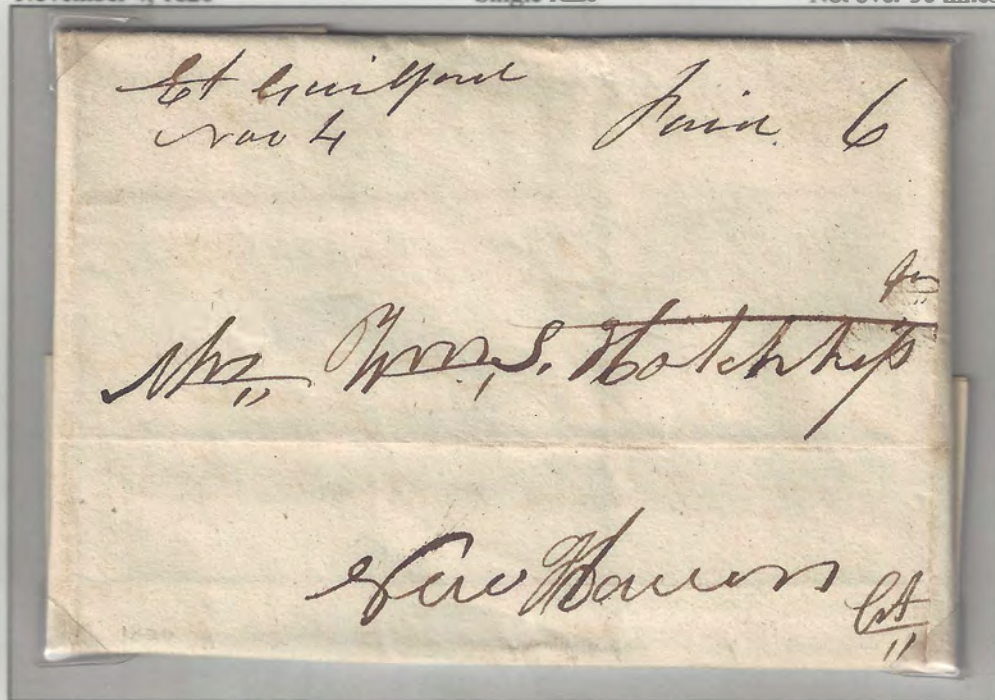 Et Guilford
Nov 4
Paid 6
Wm, S. Hotchkiss
New Haven
Ct